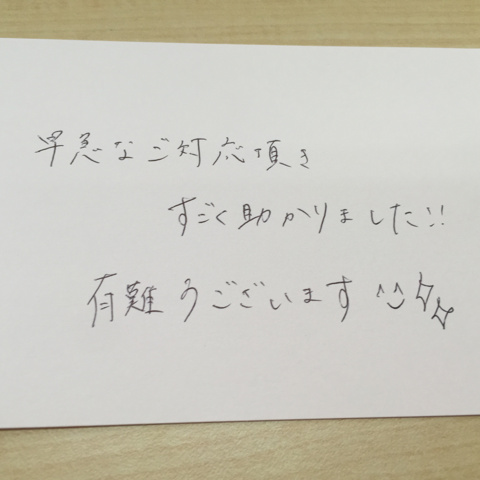 早急なご対応頂き
すごく助かりました!!
有難うございます ^^